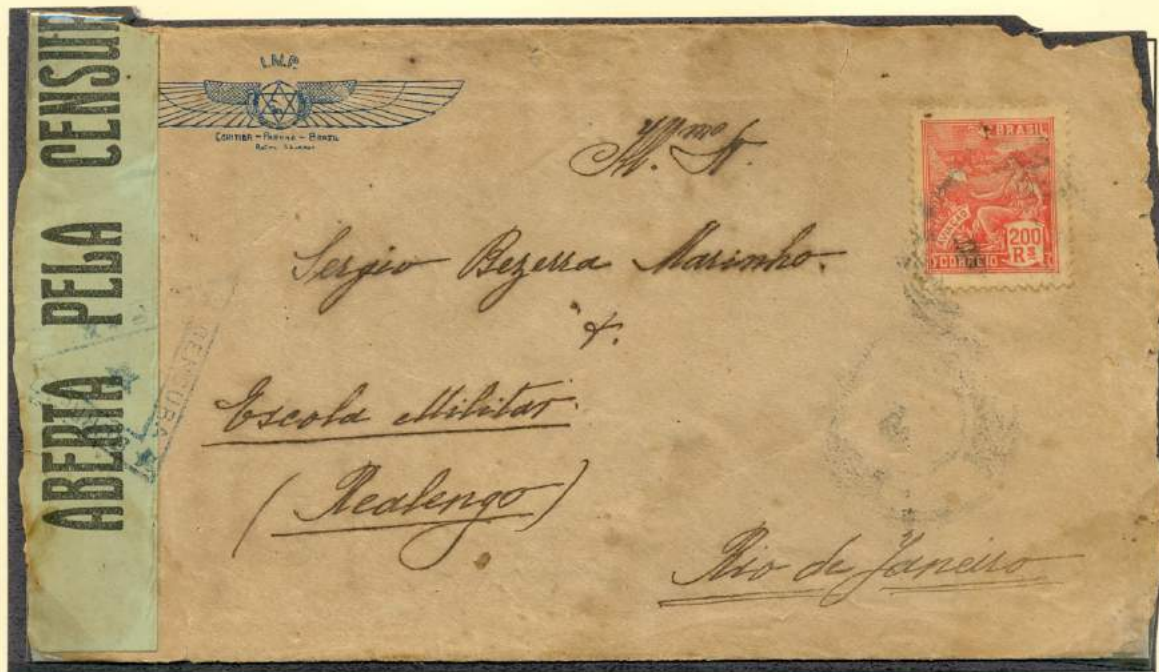 ABERTA PELA CENSUR
I.N.P.
CORITIBA - PARANÁ - BRAZIL
CENSURA
Ill.mo Sr.
Sergio Bezerra Marinho.
Escola Militar.
(Realengo)
Rio de Janeiro
BRASIL
AVIAÇÃO
200
Rs
CORREIO